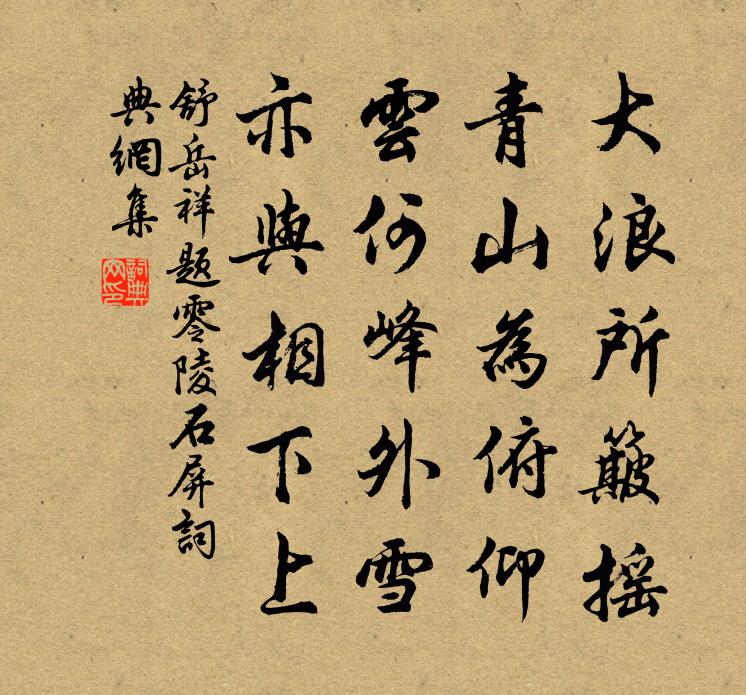 大浪所簸摇
青山為俯仰
雲何峰外雪
亦與相下上
舒岳祥题零陵石屏詞
典網集
詞典
网印